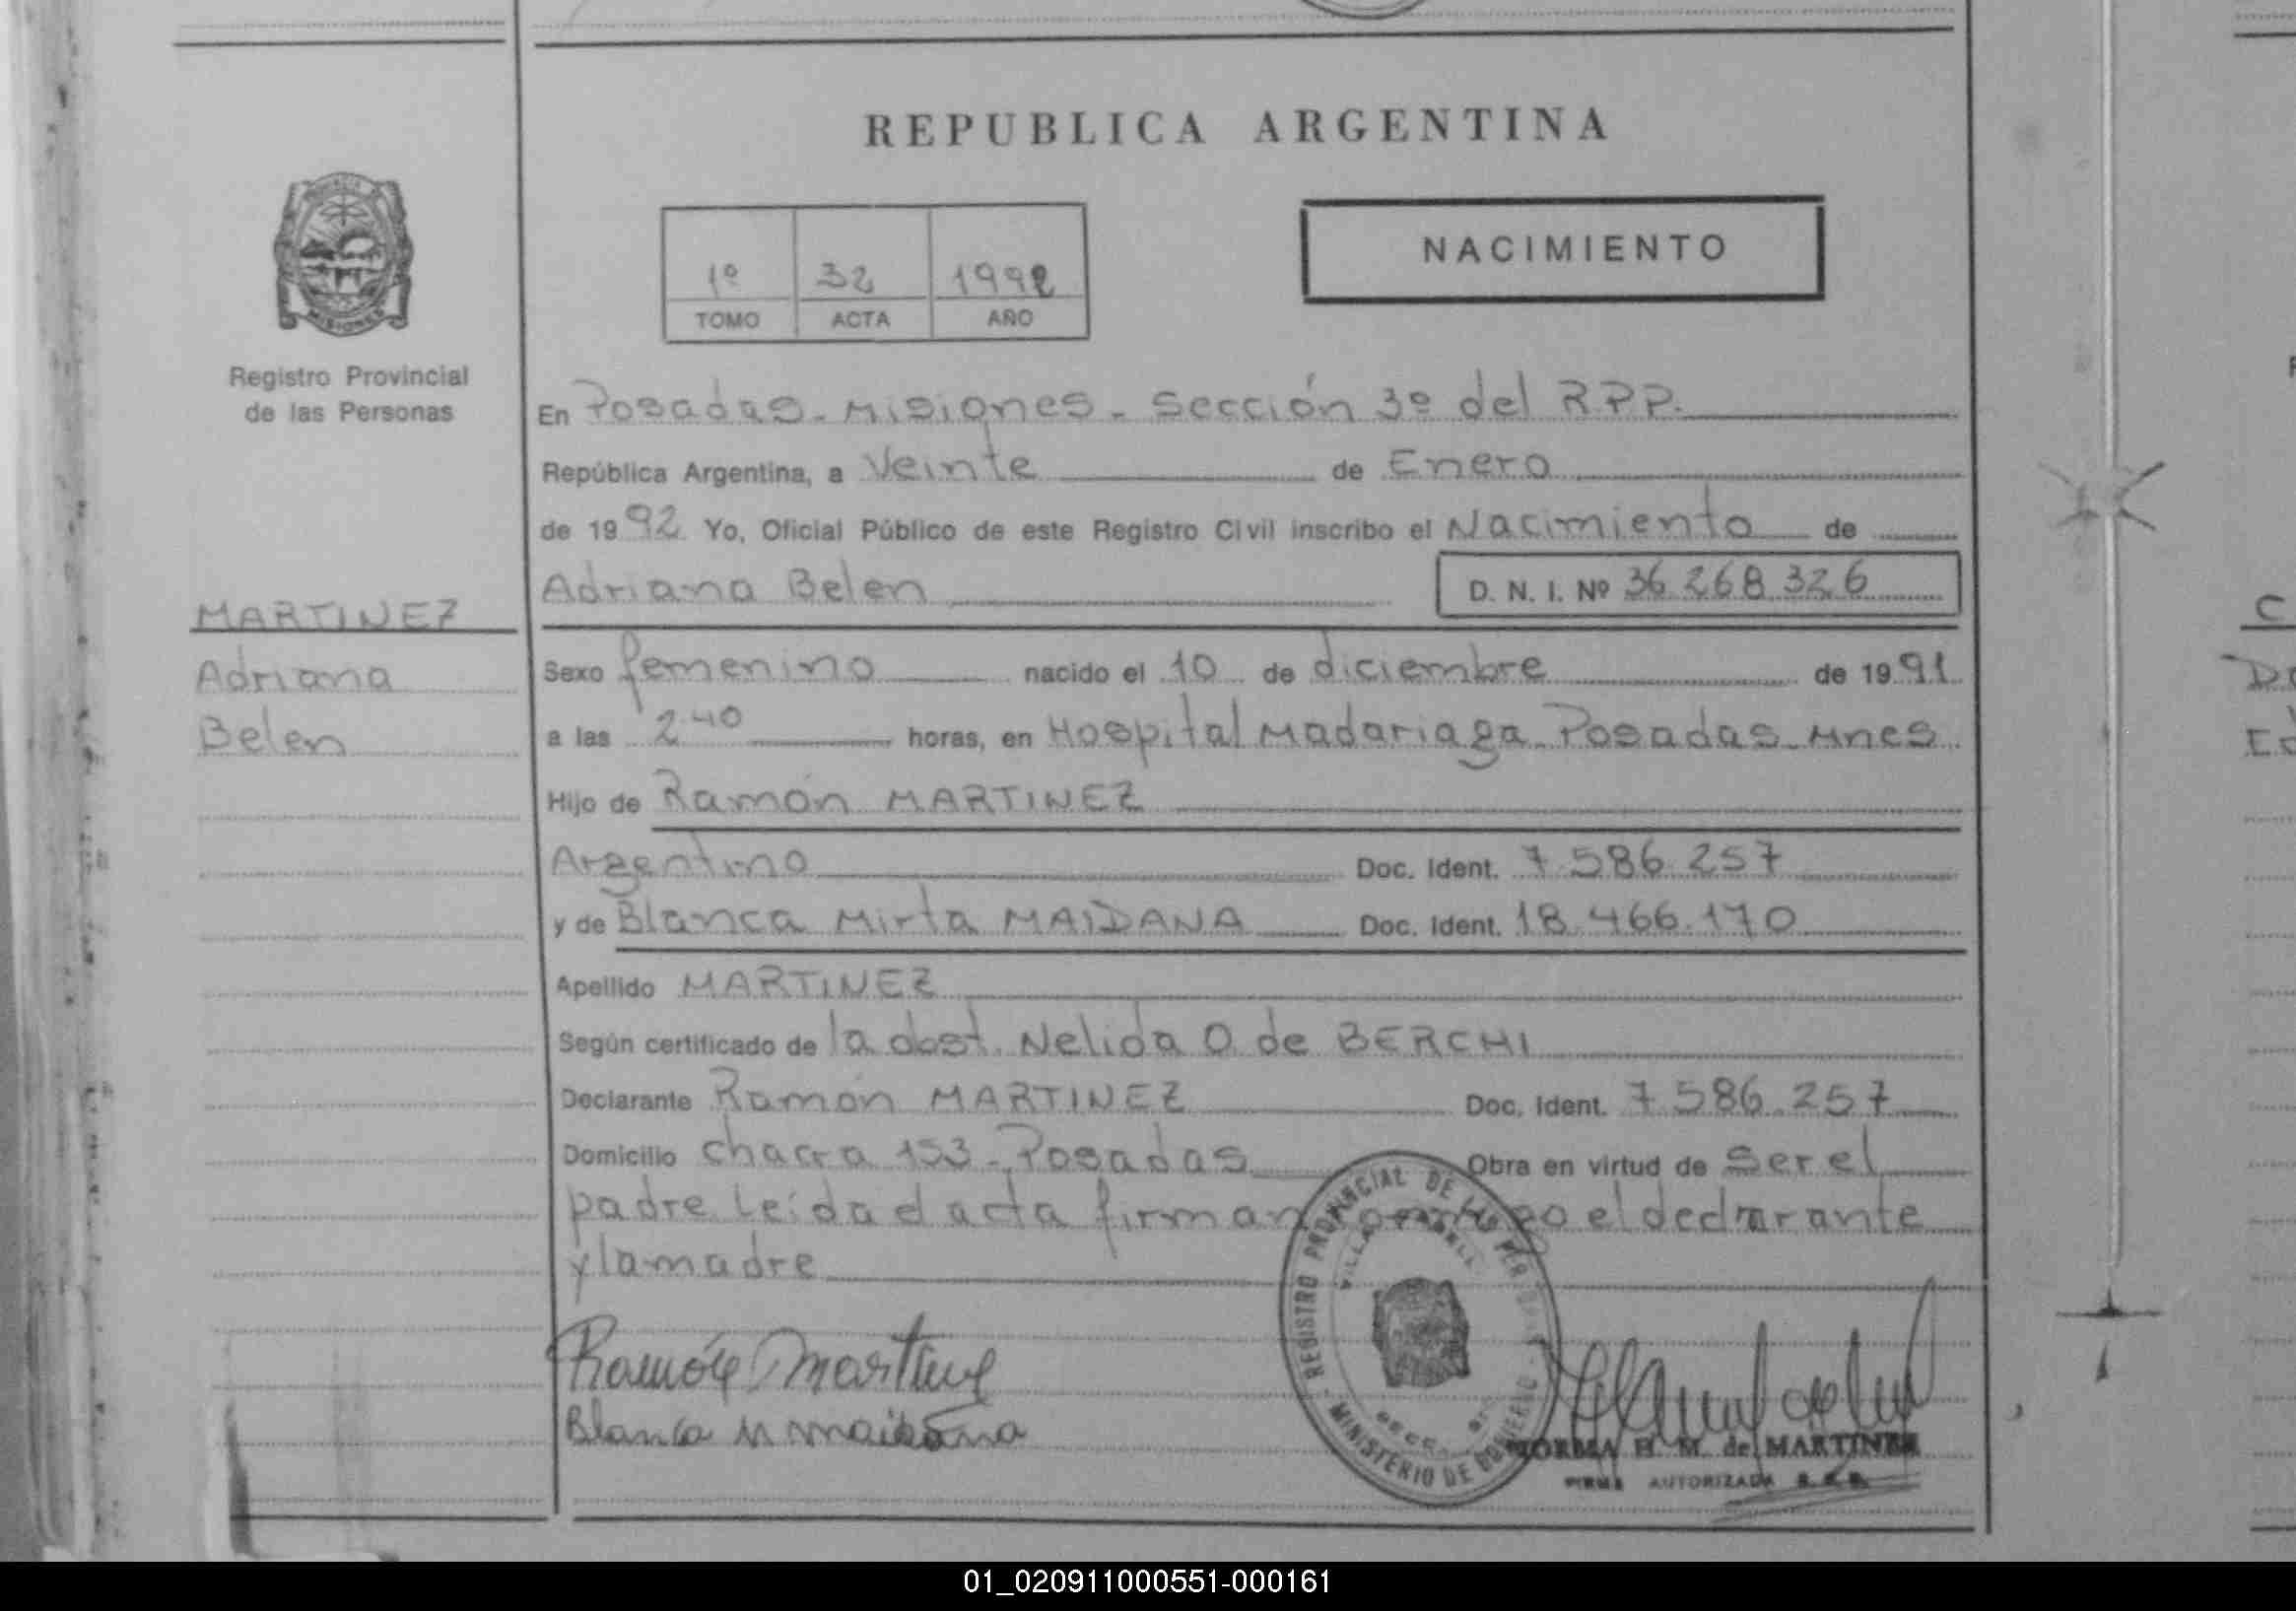 REPUBLICA ARGENTINA
NACIMIENTO
1º 32 1992
TOMO ACTA AÑO
MISIONES
Registro Provincial
de las Personas
En Posadas - Misiones - Sección 3º del R.P.P.
República Argentina, a Veinte de Enero
de 1992 Yo, Oficial Público de este Registro Civil inscribo el Nacimiento de
Adriana Belen D. N. I. Nº 36.268.326
MARTINEZ
Adriana
Belen
Sexo femenino nacido el 10 de diciembre de 1991
a las 2:40 horas, en Hospital Madariaga - Posadas - Mnes
Hijo de Ramón MARTINEZ
Argentino Doc. Ident. 7.586.257
y de Blanca Mirta MAIDANA Doc. Ident. 18.466.170
Apellido MARTINEZ
Según certificado de la obst. Nelida O. de BERCHI
Declarante Ramón MARTINEZ Doc. Ident. 7.586.257
Domicilio chacra 153 - Posadas Obra en virtud de ser el
padre. Leída el acta firman conmigo el declarante
y la madre
Ramón Martinez
Blanca M Maidana
REGISTRO PROVINCIAL DE LAS PER
MINISTERIO DE GOBIERNO
NORMA H. M. de MARTINEZ
FIRMA AUTORIZADA
01_020911000551-000161